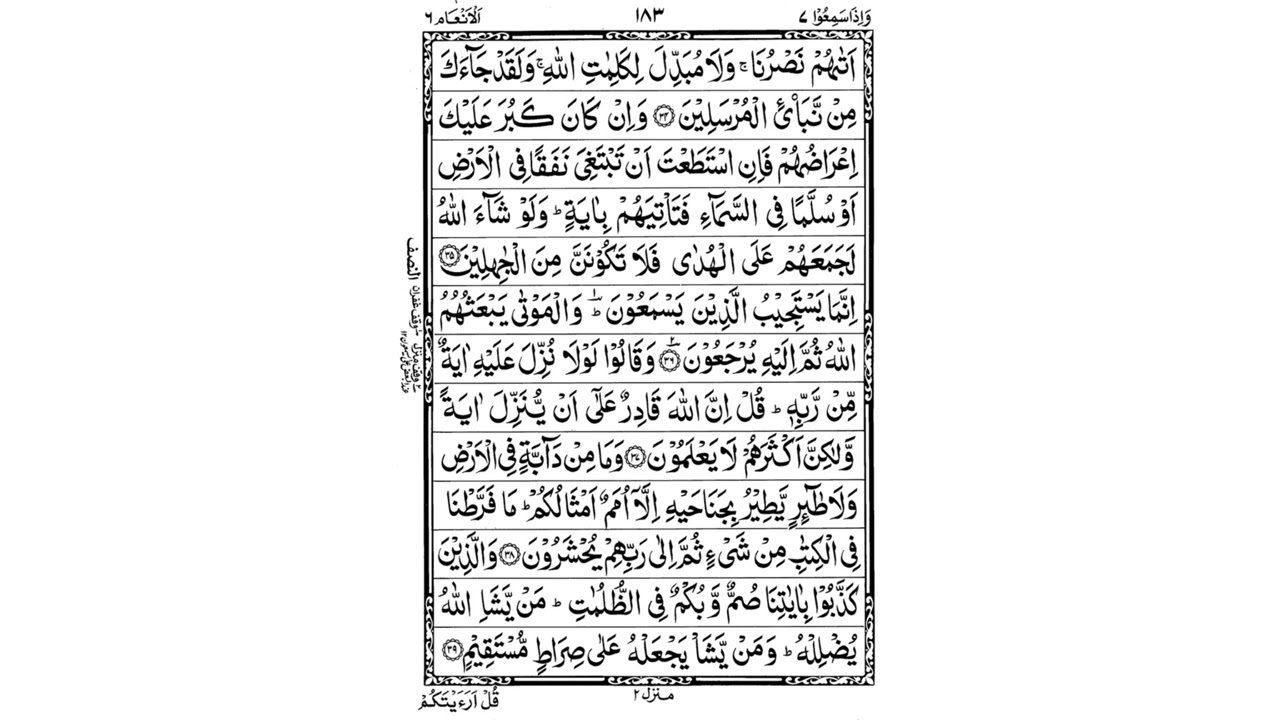 وَاِذَاسَمِعُوْا ۷ ۱۸۳ اَلْاَنْعَام ۶
اَتٰىهُمْ نَصْرُنَا ۚ وَلَا مُبَدِّلَ لِكَلِمٰتِ اللّٰهِ ۚ وَلَقَدْ جَآءَكَ
مِنْ نَّبَاْئِ الْمُرْسَلِيْنَ ﴿۳۴﴾ وَاِنْ كَانَ كَبُرَ عَلَيْكَ
اِعْرَاضُهُمْ فَاِنِ اسْتَطَعْتَ اَنْ تَبْتَغِىَ نَفَقًا فِى الْاَرْضِ
اَوْ سُلَّمًا فِى السَّمَآءِ فَتَاْتِيَهُمْ بِاٰيَةٍ ؕ وَلَوْ شَآءَ اللّٰهُ
لَجَمَعَهُمْ عَلَى الْهُدٰى فَلَا تَكُوْنَنَّ مِنَ الْجٰهِلِيْنَ ﴿۳۵﴾
اِنَّمَا يَسْتَجِيْبُ الَّذِيْنَ يَسْمَعُوْنَ ؕ وَالْمَوْتٰى يَبْعَثُهُمُ
اللّٰهُ ثُمَّ اِلَيْهِ يُرْجَعُوْنَ ﴿۳۶﴾ وَقَالُوْا لَوْلَا نُزِّلَ عَلَيْهِ اٰيَةٌ
مِّنْ رَّبِّهٖ ؕ قُلْ اِنَّ اللّٰهَ قَادِرٌ عَلٰٓى اَنْ يُّنَزِّلَ اٰيَةً
وَّلٰكِنَّ اَكْثَرَهُمْ لَا يَعْلَمُوْنَ ﴿۳۷﴾ وَمَا مِنْ دَآبَّةٍ فِى الْاَرْضِ
وَلَا طٰٓئِرٍ يَّطِيْرُ بِجَنَاحَيْهِ اِلَّاۤ اُمَمٌ اَمْثَالُكُمْ ؕ مَا فَرَّطْنَا
فِى الْكِتٰبِ مِنْ شَىْءٍ ثُمَّ اِلٰى رَبِّهِمْ يُحْشَرُوْنَ ﴿۳۸﴾ وَالَّذِيْنَ
كَذَّبُوْا بِاٰيٰتِنَا صُمٌّ وَّبُكْمٌ فِى الظُّلُمٰتِ ؕ مَنْ يَّشَاِ اللّٰهُ
يُضْلِلْهُ ؕ وَمَنْ يَّشَاْ يَجْعَلْهُ عَلٰى صِرَاطٍ مُّسْتَقِيْمٍ ﴿۳۹﴾
النصف
وقف غفران
وقف منزل
منزل ۲
قُلْ اَرَءَيْتَكُمْ